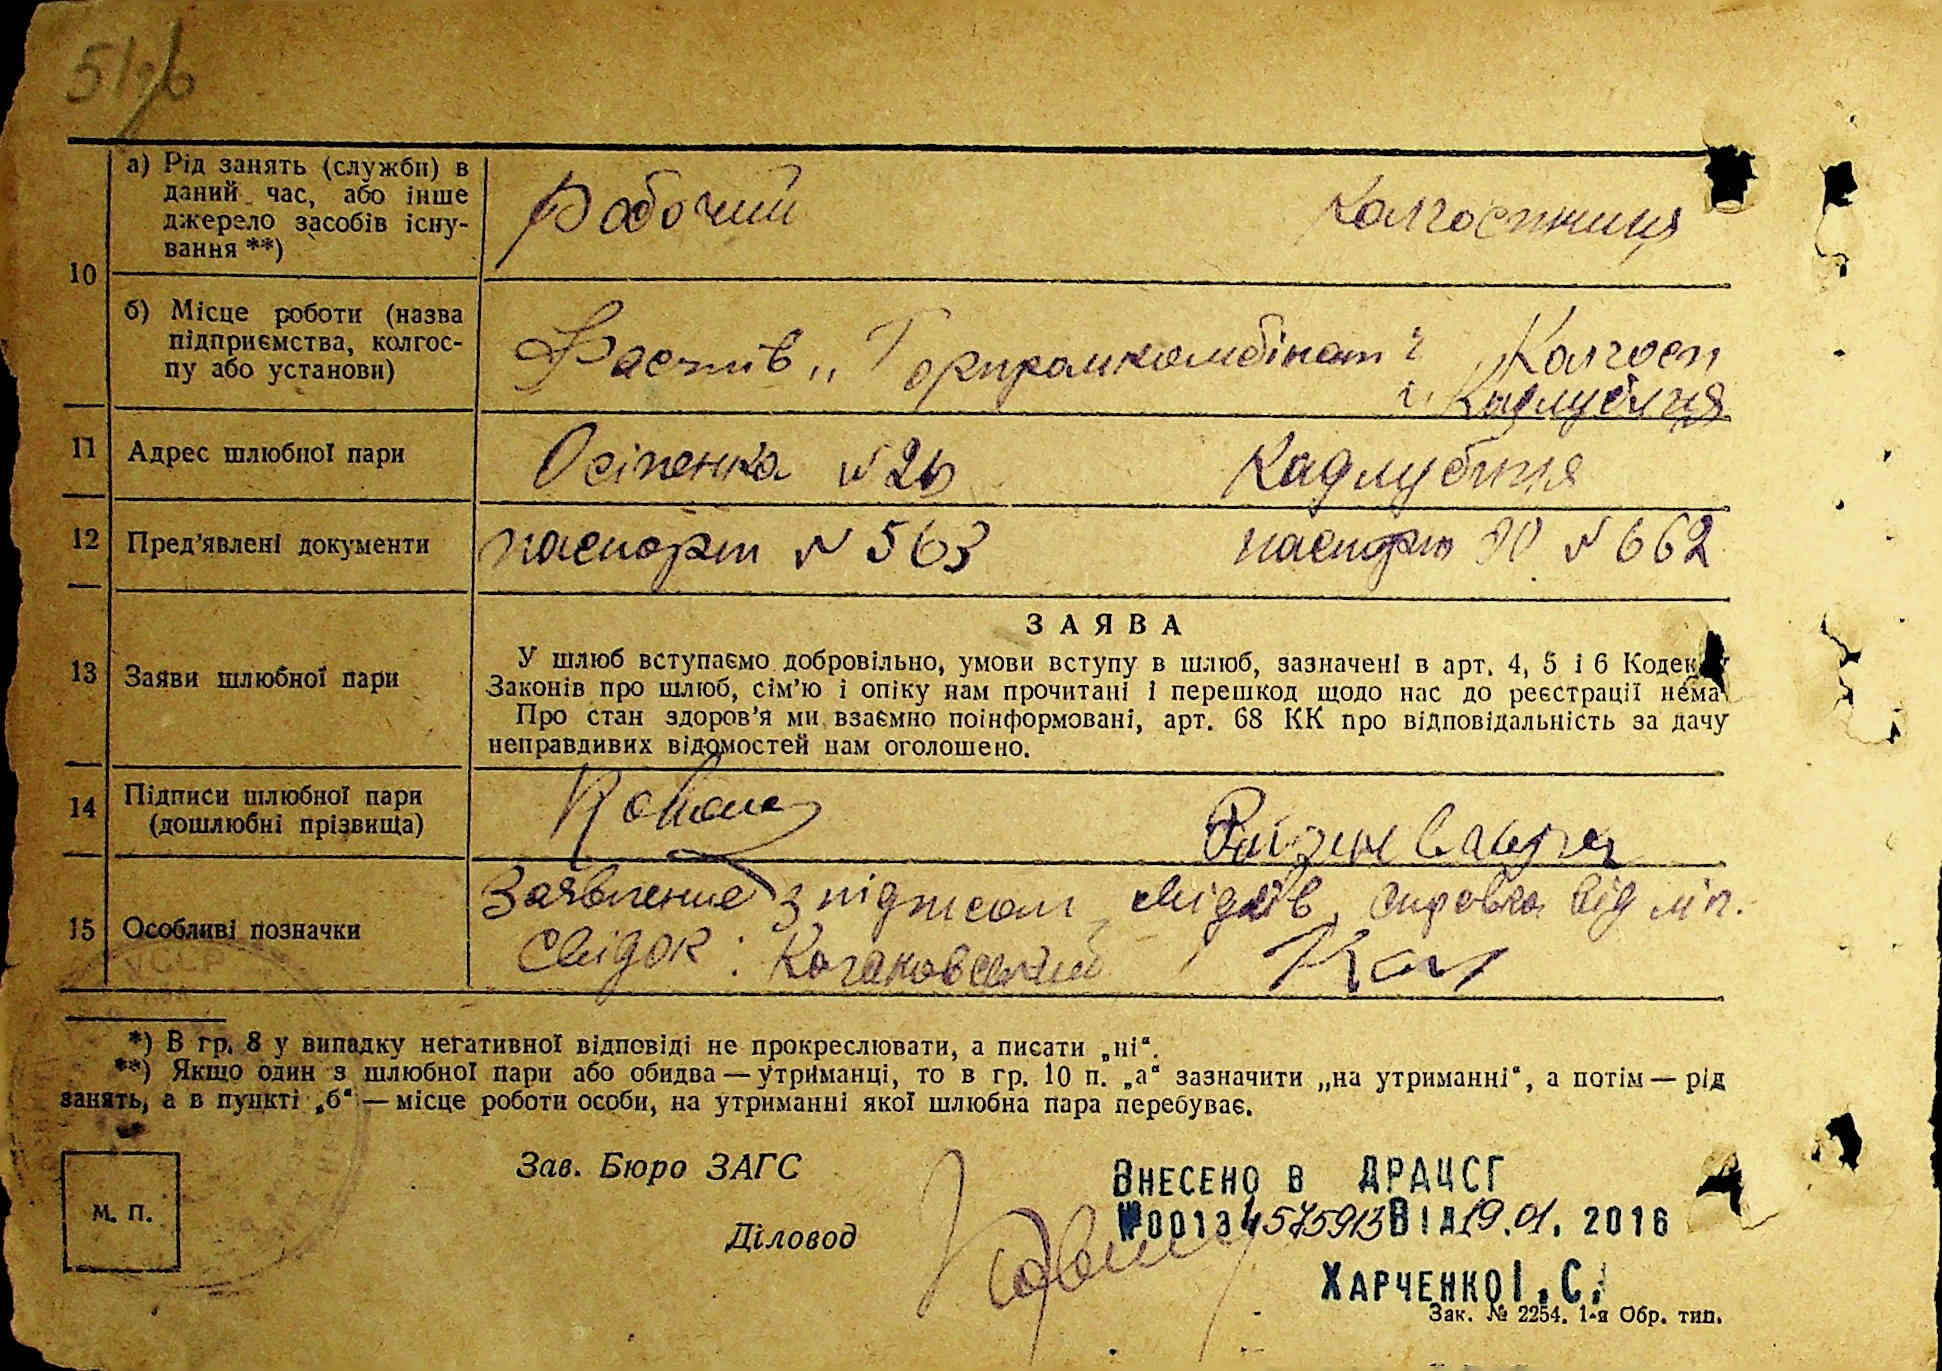 51/26
а) Рід занять (служби) в
даний час, або інше
джерело засобів існу-
вання **)
Рабочий
Колгоспниця
10
б) Місце роботи (назва
підприємства, колгос-
пу або установи)
Фастів „Горпромкомбінат“
Колгосп
с. Кадлубиця
11
Адрес шлюбної пари
Осіпенка №26
Кадлубиця
12
Пред’явлені документи
паспорт № 563
паспорт № 662
13
Заяви шлюбної пари
ЗАЯВА
У шлюб вступаємо добровільно, умови вступу в шлюб, зазначені в арт. 4, 5 і 6
Законів про шлюб, сім’ю і опіку нам прочитані і перешкод щодо нас до реєстрації нема
Про стан здоров’я ми взаємно поінформовані, арт. 68 КК про відповідальність за дачу
неправдивих відомостей нам оголошено.
14
Підписи шлюбної пари
(дошлюбні прізвища)
15
Особливі позначки
Заявление з підписом свідків, справка від
Свідок: Кагановський
УССР
*) В гр. 8 у випадку негативної відповіді не прокреслювати, а писати „ні“.
**) Якщо один з шлюбної пари або обидва — утриманці, то в гр. 10 п. „а“ зазначити „на утриманні“, а потім — рід
занять, а в пункті „б“ — місце роботи особи, на утриманні якої шлюбна пара перебуває.
М. П.
Зав. Бюро ЗАГС
Діловод
ВНЕСЕНО В ДРАЦСГ
№00134575913 ВІД 19.01.2016
ХАРЧЕНКО І.С.
Зак. № 2254. 1-я Обр. тип.